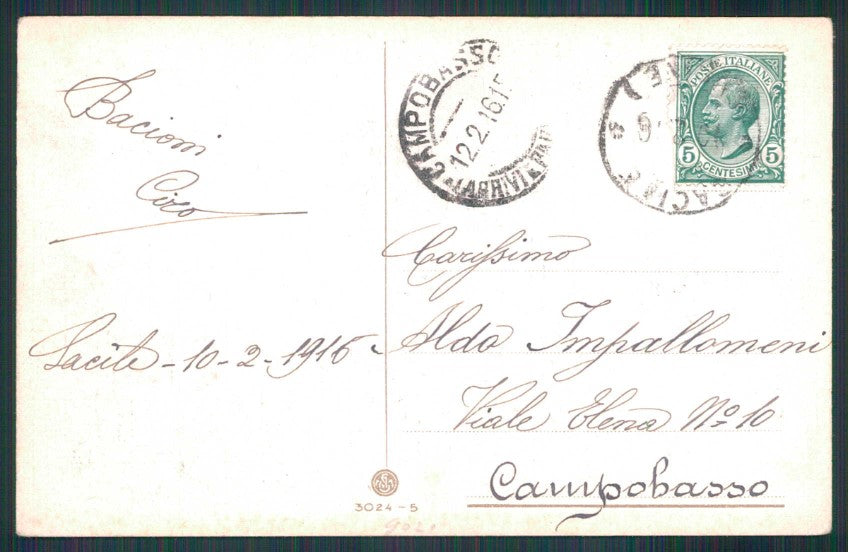 Bacioni
Ciro
Sacile - 10 - 2 - 1916
CAMPOBASSO
12.2.16.15
(ARRIVI
POSTE ITALIANE
5 CENTESIMI 5
Carissimo
Aldo Impallomeni
Viale Elena Nº 10
Campobasso
3024-5
902.